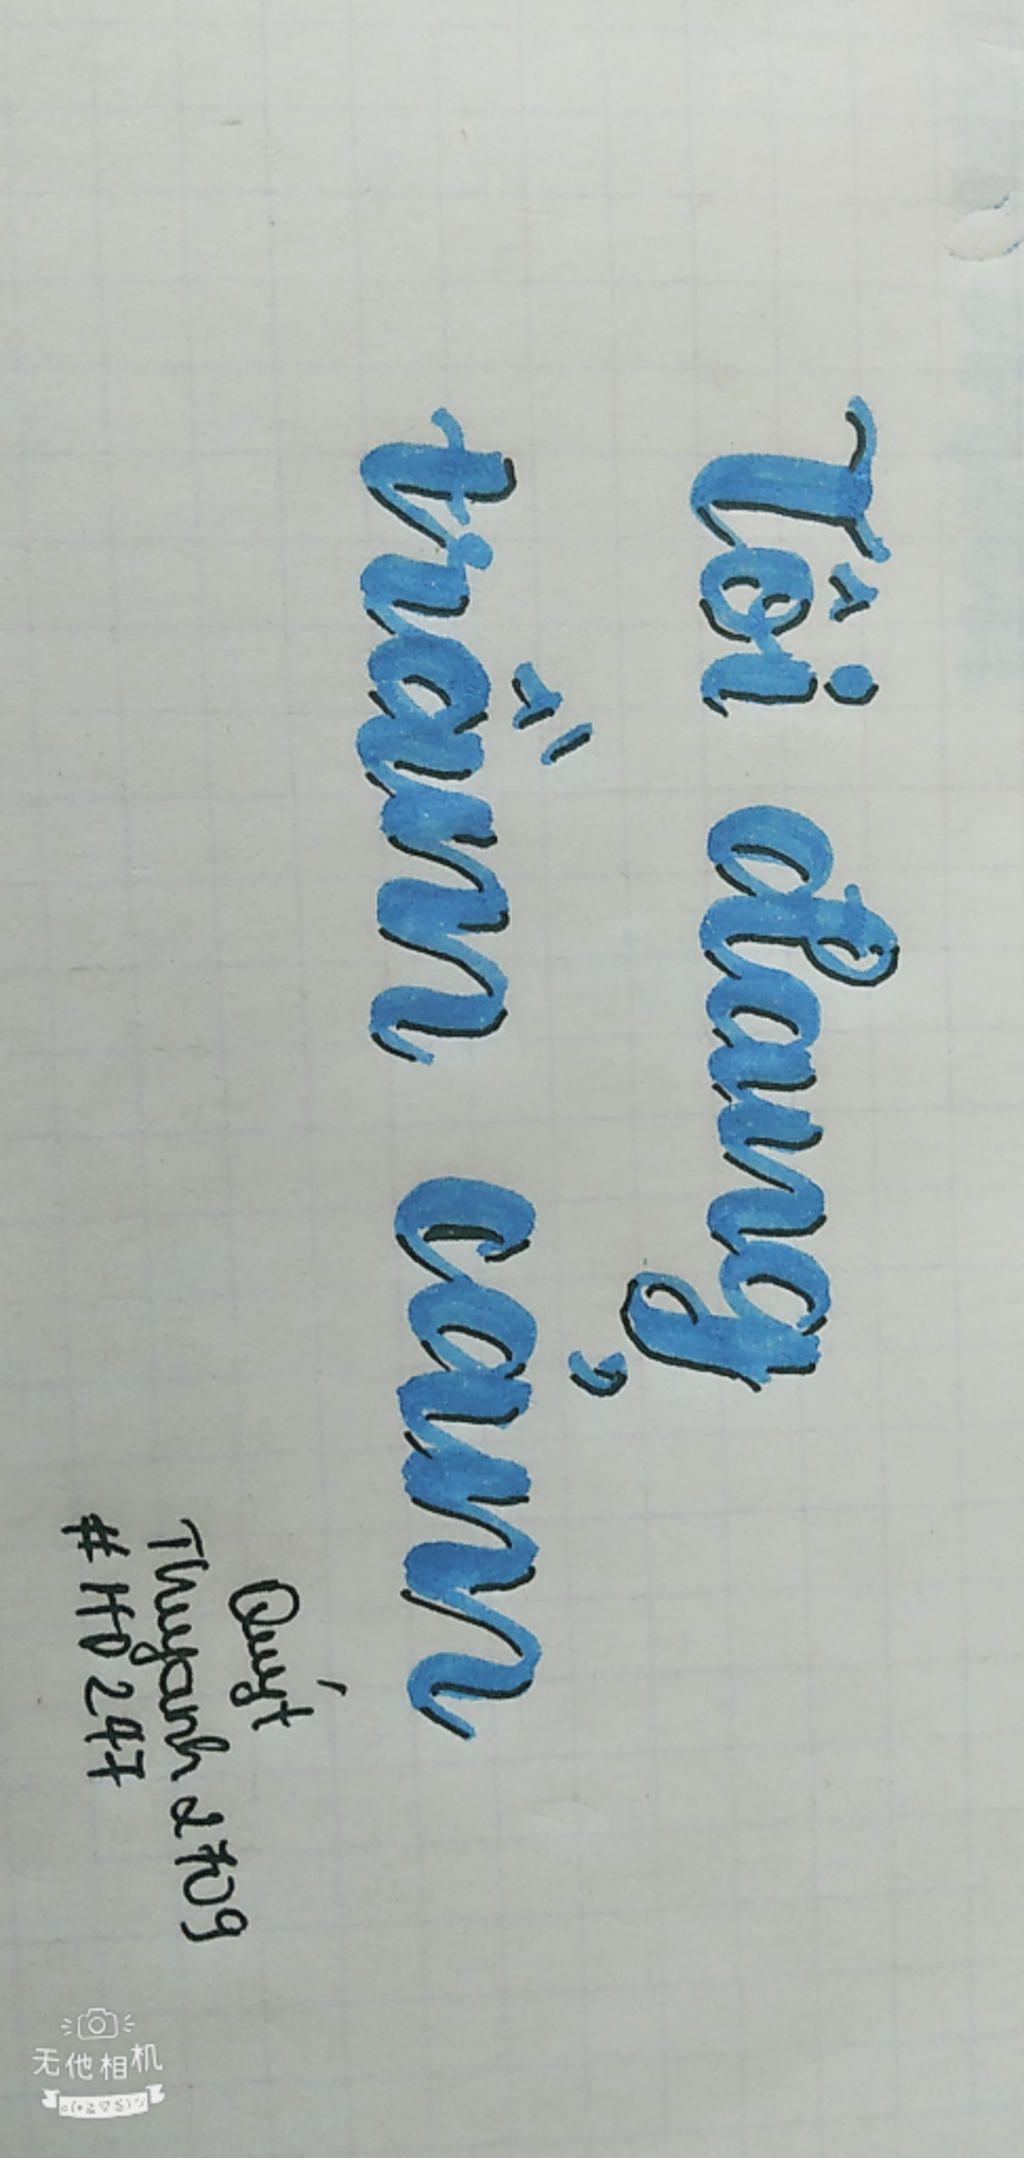 Tôi đang
trầm cảm
Quýt
Thuyanh2709
#HD247
无他相机